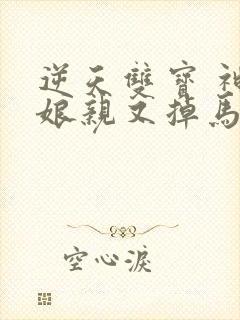 逆天雙寶 神
娘親又掉馬
空心淚